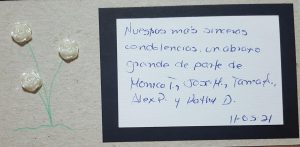 Nuestras más sinceras
condolencias. un abrazo
grande de parte de
Monica T., José M., Tamar A.,
Alex P. y Kathy D.
11-03-21